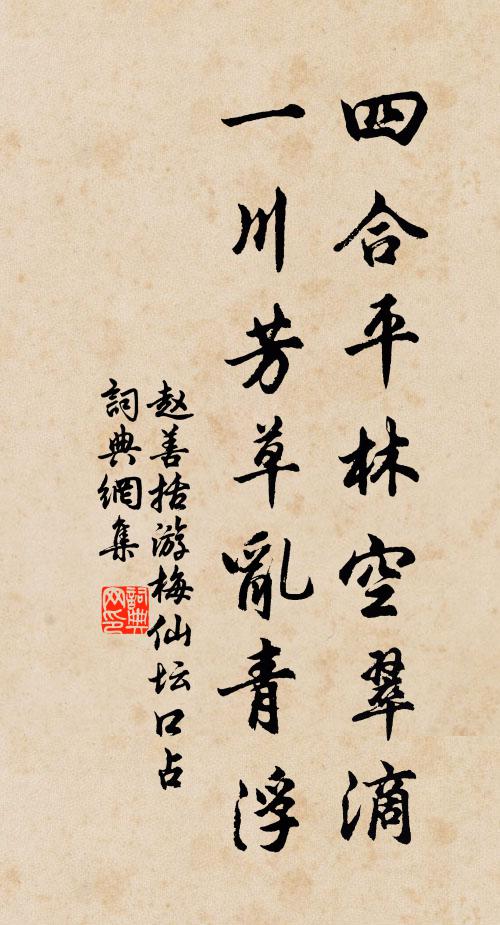 四合平林空翠滴
一川芳草亂青浮
赵善括游梅仙坛口占
詞典網集
詞典
网印